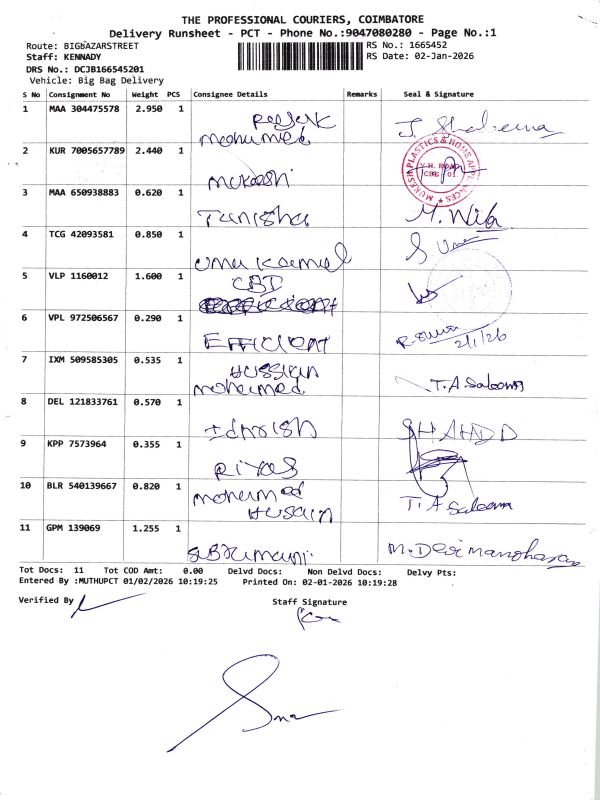 THE PROFESSIONAL COURIERS, COIMBATORE
Delivery Runsheet - PCT - Phone No.:9047080280 - Page No.:1
Route: BIGBAZARSTREET
Staff: KENNADY
DRS No.: DCJB166545201
Vehicle: Big Bag Delivery
RS No.: 1665452
RS Date: 02-Jan-2026
S No Consignment No Weight PCS Consignee Details Remarks Seal & Signature
1 MAA 304475578 2.950 1
mohumed
2 KUR 7005657789 2.440 1 mukeshi
MUKESH PLASTICS & HOME APPLIANCES
V.H. ROAD
CBE - 01.
3 MAA 650938883 0.620 1 Tanisha M. Niba
4 TCG 42093581 0.850 1 umu kamal
5 VLP 1160012 1.600 1 CBT
6 VPL 972506567 0.290 1 EFFICIENT 2/1/26
7 IXM 509585305 0.535 1 Hussain
mohaimed T.A Saleema
8 DEL 121833761 0.570 1 Idhrish SHAHDD
9 KPP 7573964 0.355 1 Riyas
10 BLR 540139667 0.820 1 mohaimed
Husain T.A Saleema
11 GPM 139069 1.255 1 M.Devi manoharan
Tot Docs: 11 Tot COD Amt: 0.00 Delvd Docs: Non Delvd Docs: Delvy Pts:
Entered By :MUTHUPCT 01/02/2026 10:19:25 Printed On: 02-01-2026 10:19:28
Verified By
Staff Signature